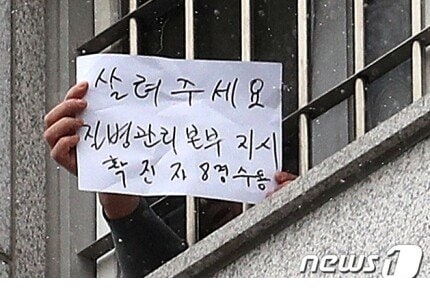 살려주세요
질병관리본부 지시
확진자 8명 수용
news1